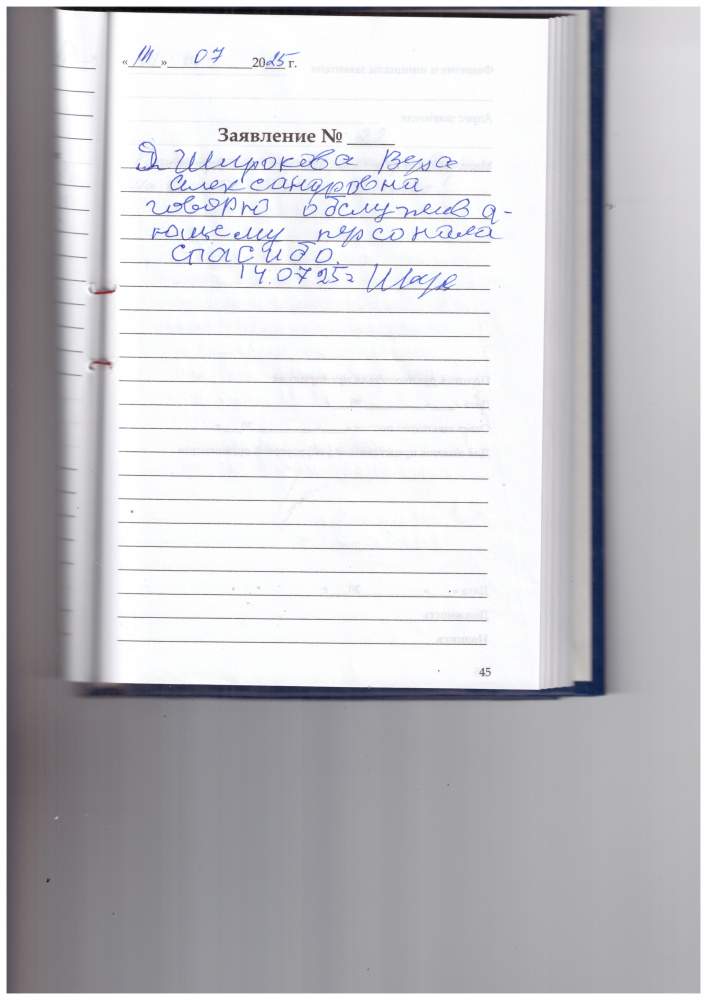 «14» 07 2025 г.
Заявление № ____
Я Широкова Вера
Александровна
говорю обслужива-
ющему персонала
спасибо.
14.07 25г
45